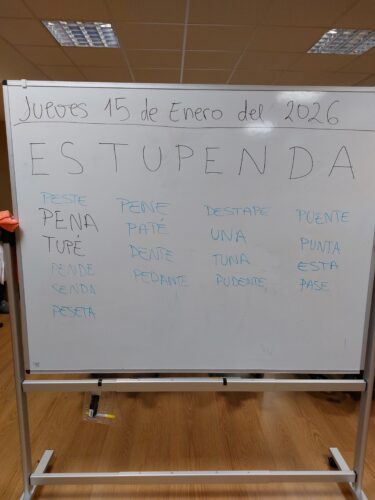 Jueves 15 de Enero del 2026
ESTUPENDA
PESTE
PENA
TUPÉ
PENDE
SENDA
PESETA
PENE
PATÉ
DENTE
PEDANTE
DESTAPE
UNA
TUNA
PUDENTE
PUENTE
PUNTA
ESTA
PASE